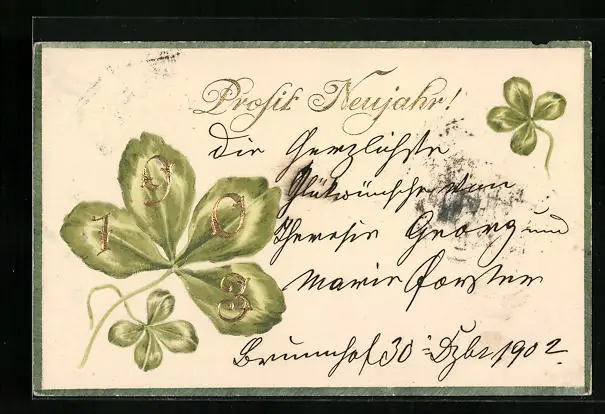 Prosit Neujahr!
1903
die Herzlichste
Glükwünsche von
Theresie Georg und
Marie Forster
Brunnhof 30 Dzbr 1902